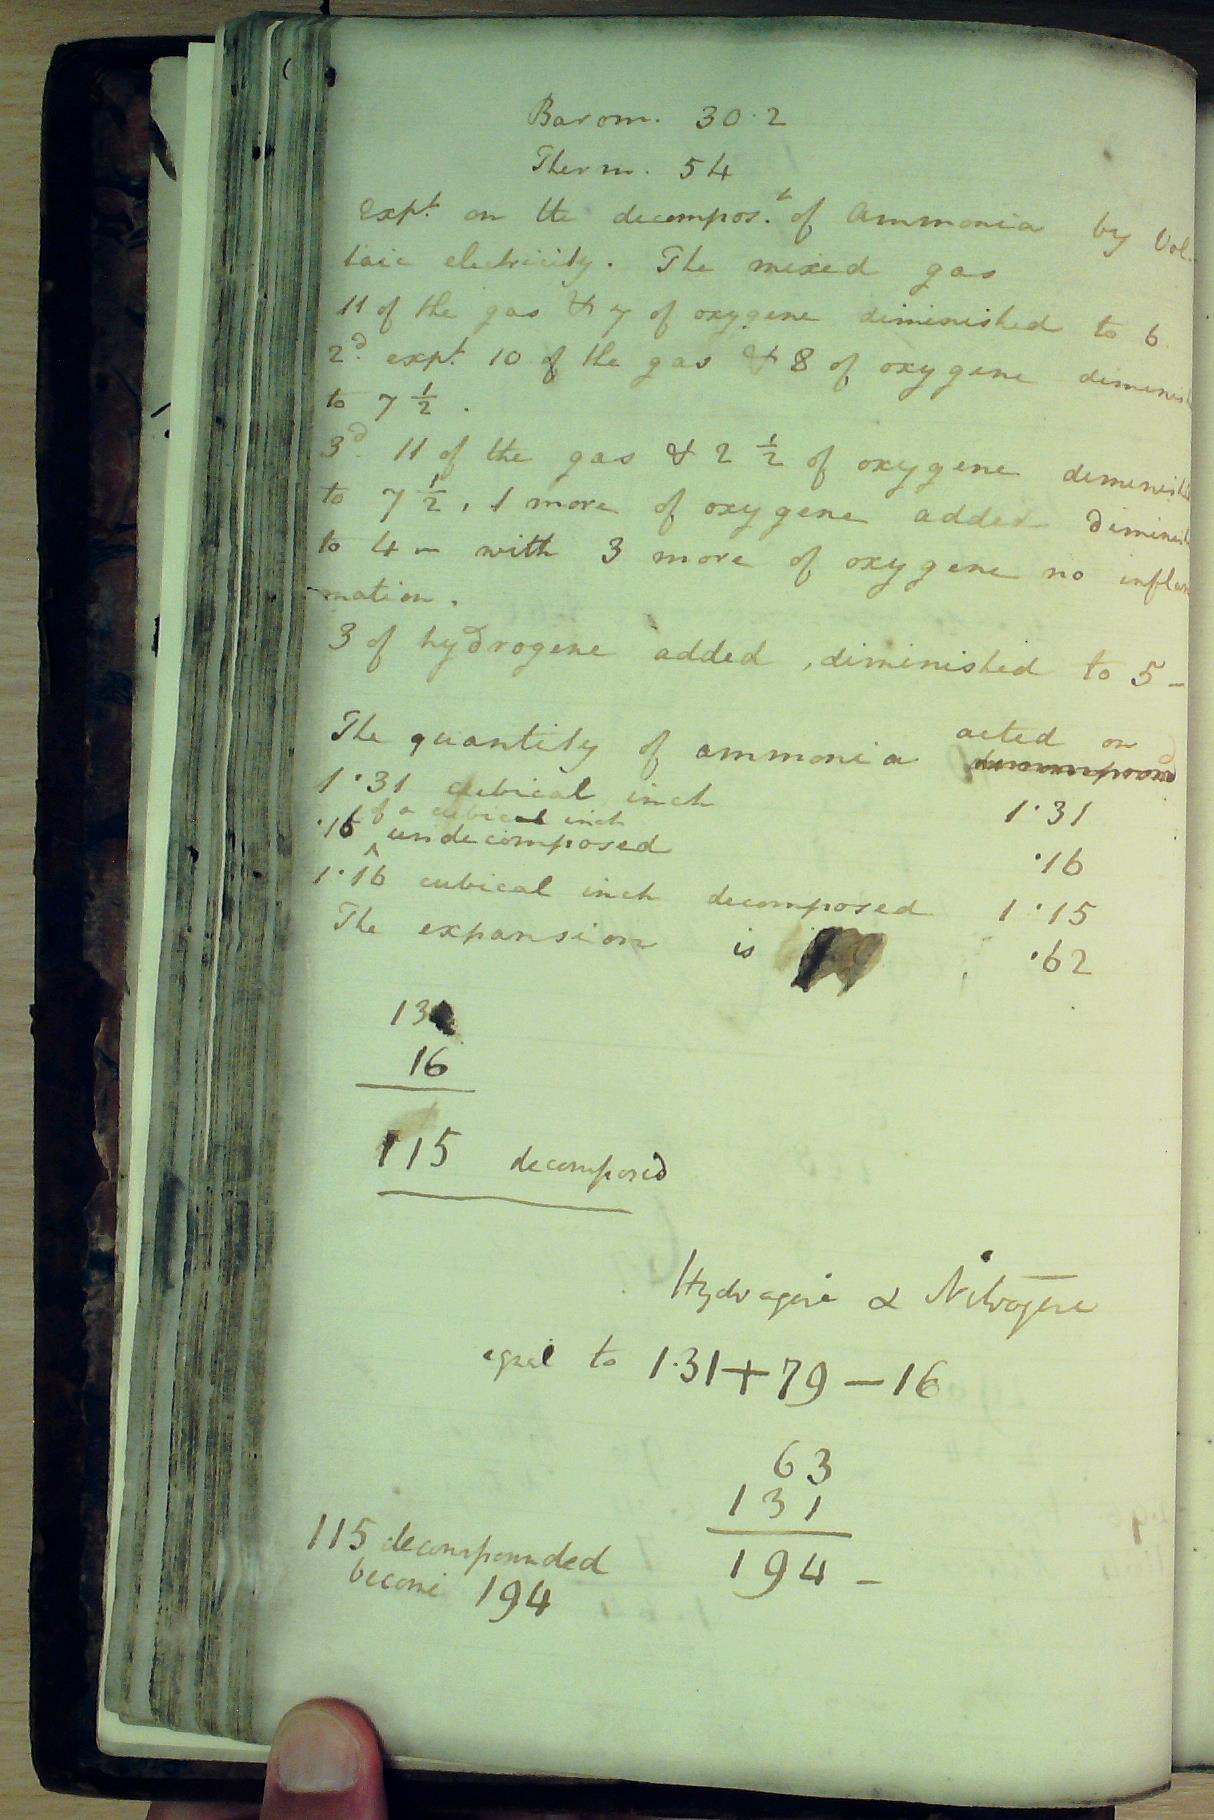 Barom. 30.2
Therm. 54
Expt. on the decompos.n of Ammonia by Vol-
taic electricity. The mixed gas
11 of the gas & 7 of oxygene diminished to 6
2d. expt. 10 of the gas & 8 of oxygene diminish
to 7 1/2.
3d. 11 of the gas & 2 1/2 of oxygene diminish
to 7 1/2, 1 more of oxygene added diminish
to 4 - with 3 more of oxygene no inflam
mation.
3 of hydrogene added, diminished to 5 -
The quantity of ammonia acted on
1.31 cubical inch 1.31
.16 of a cubical inch undecomposed .16
1.16 cubical inch decomposed 1.15
The expansion is .62
13
16
115 decomposed
Hydrogene & Nitrogene
equal to 1.31+79-16
63
131
194 -
115 decompounded
become 194